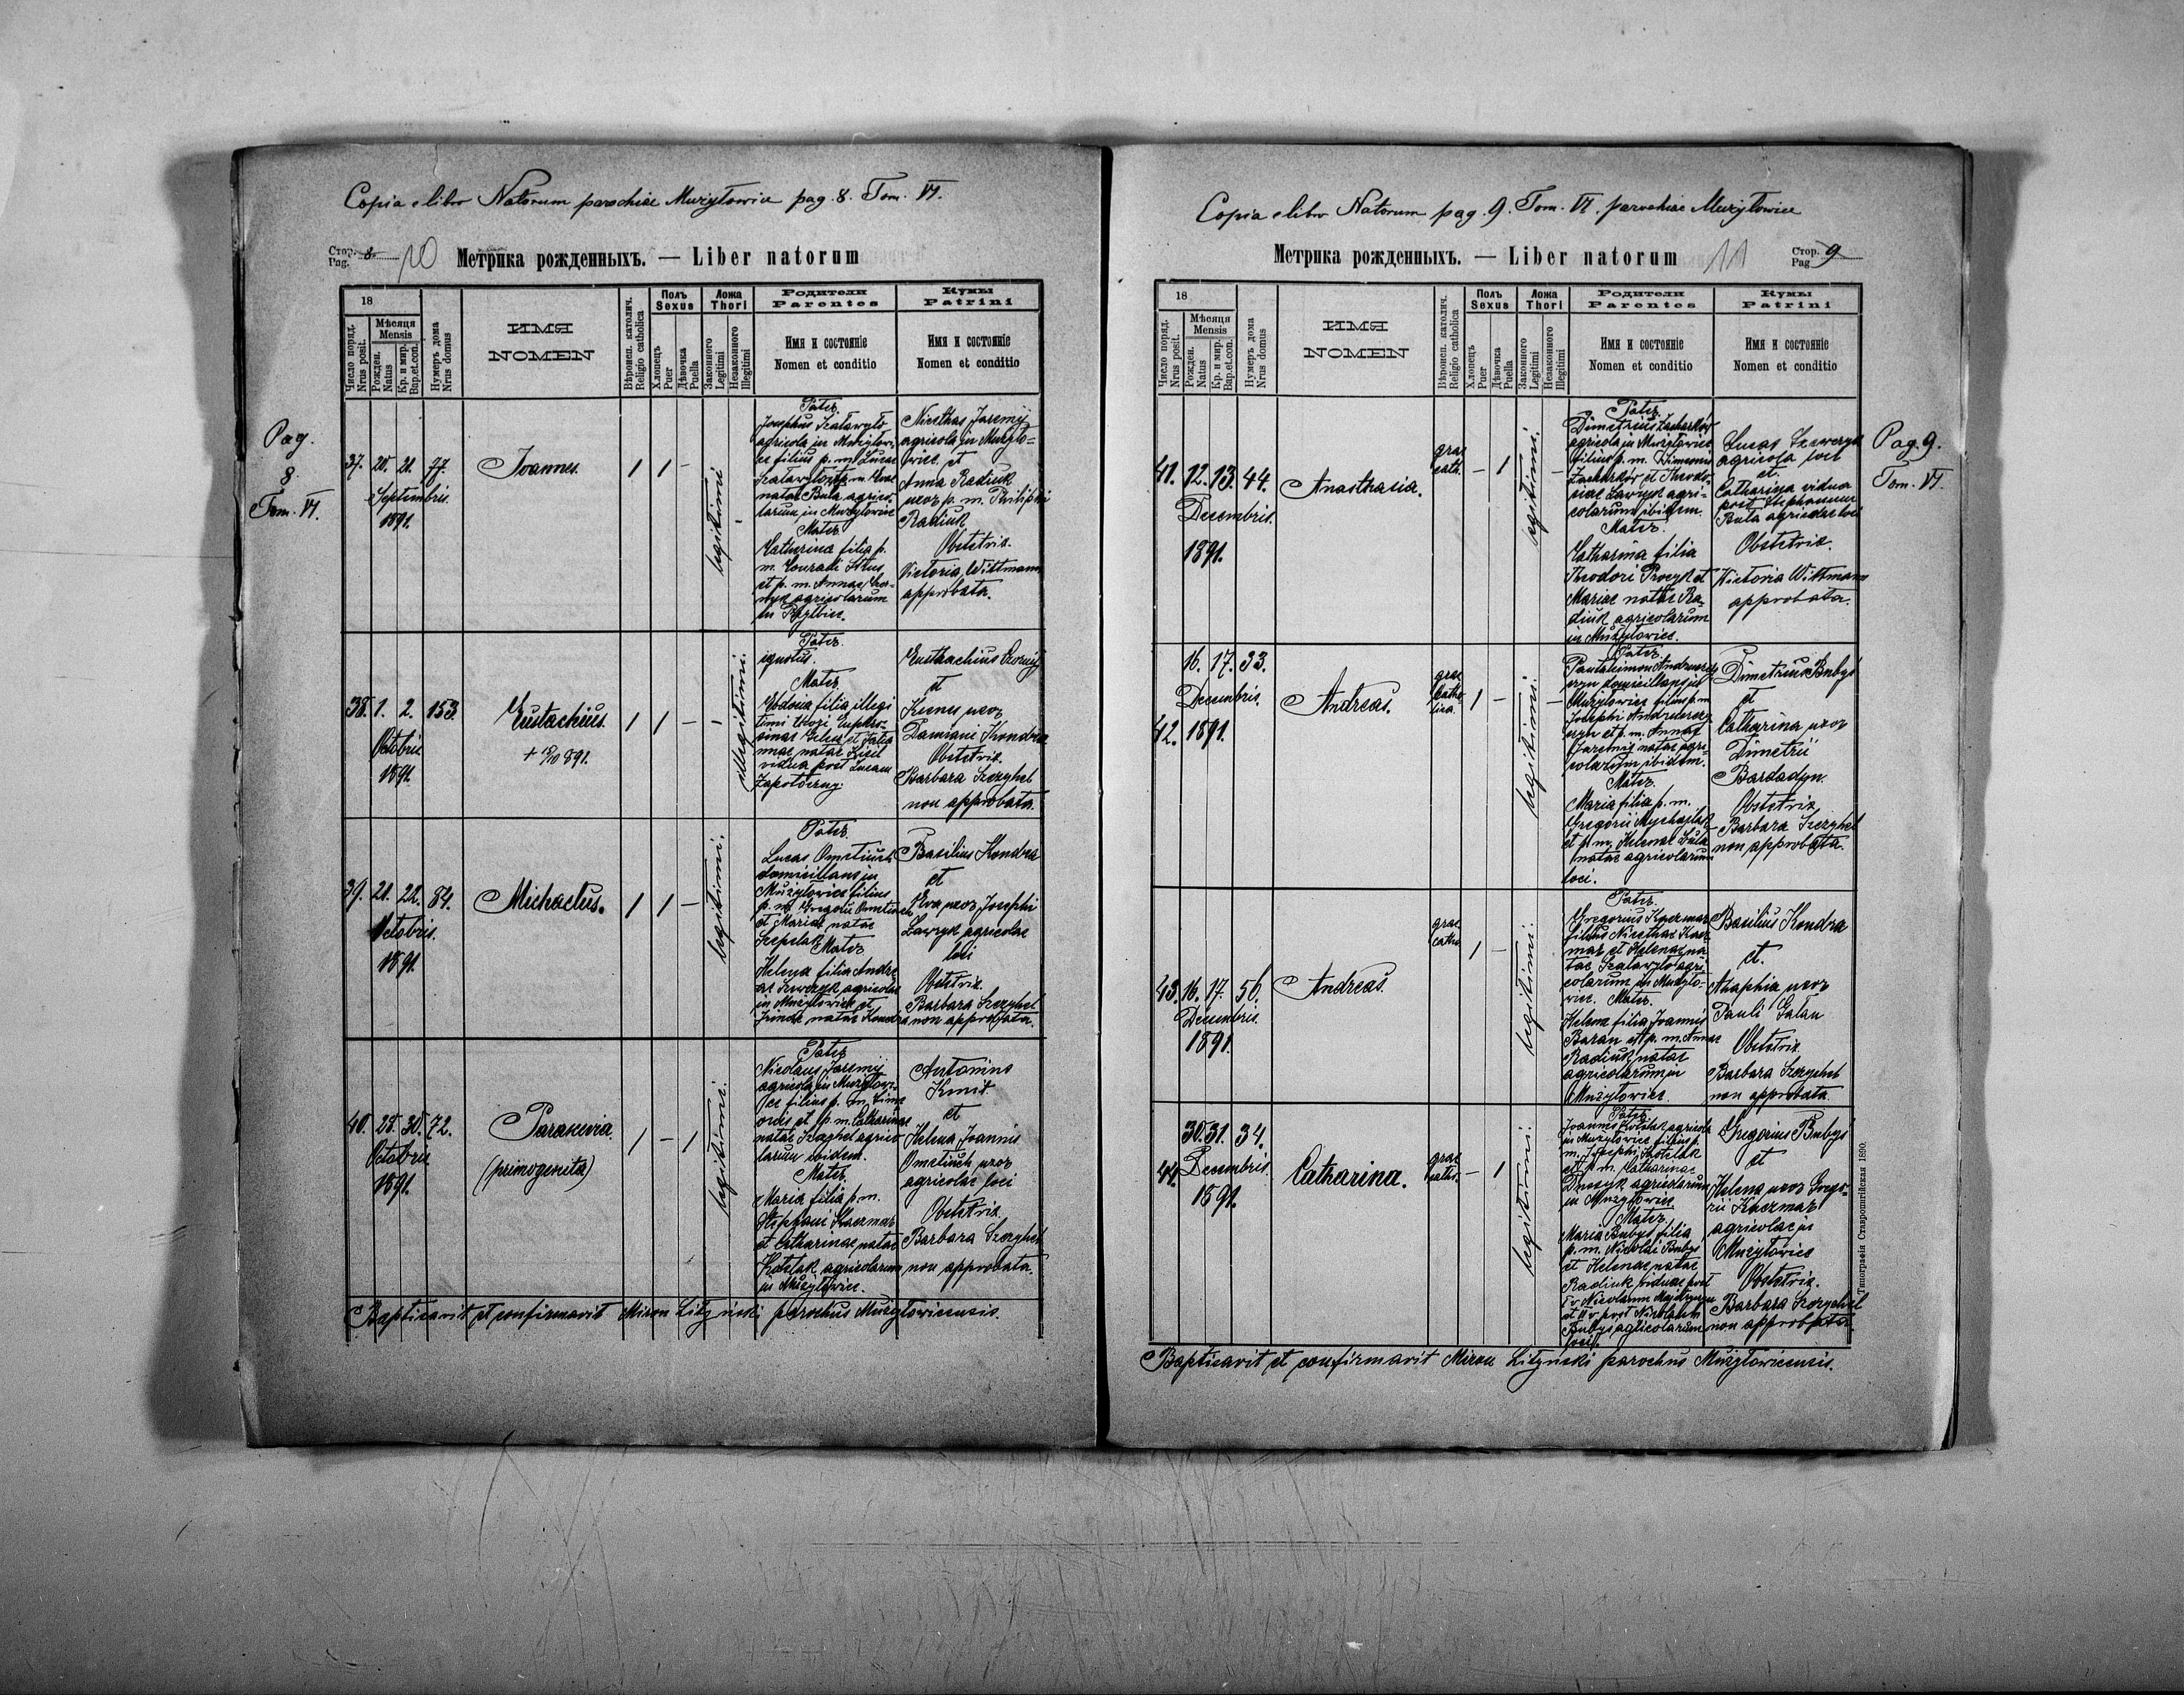 Copia e libro Natorum parochiae Mużyłowice pag. 8. Tom. VI.
Стор. Pag. 8. 10 Метрика рожденныхъ. — Liber natorum
18
Число поряд. Nrus posit.
Мѣсяця Mensis
Рожден. Natus
Кр. и мир. Bap.et.con.
Нумеръ дома Nrus domus
ИМЯ
NOMEN
Вѣроисп. католич. Religio catholica
Полъ Sexus
Хлопець Puer
Дѣвочка Puella
Ложа Thori
Законного Legitimi
Незаконного Illegitimi
Родители Parentes
Имя и состояніе
Nomen et conditio
Кумы Patrini
Имя и состояніе
Nomen et conditio
Pag.
8.
Tom. VI.
37. 20. 21. 77.
Septembris
1891.
Joannes.
1 1 -
legitimi
Pater
Josephus
agricola in Mużyłowi-
ce filius p. m. Lucae
natae Buła agrico-
larum in Mużyłowice
Mater
Catharina filia p.
et p. m. Annae
agricolarum
in
Nicethas Jaremij
agricola in Mużyło-
wice et
Anna Radiuk
uxor p. m. Philippi
Radiuk
Obstetrix.
Victoria Wittmann
approbata.
38. 1. 2. 153.
Octobris
1891.
Eustachius.
1 1 -
illegitimi.
Pater
ignotus.
Mater
Eudoxia filia illegi
timi thori Euphro-
sinae
vidua post Lucam
Eusthachius
et
uxor
Damiani Kondra
Obstetrix.
Barbara Szczyhel
non approbata.
39. 21. 22. 84.
Octobris.
1891.
Michaelus.
1 1 -
legitimi.
Pater.
Lucas Ometiuch
domicilians in
Mużyłowice filius
p. m. Gregorii Ometiuch
et Mariae natae
Mater
Helena filia Andre
ae Szewczyk agricolae
in Mużyłowice et
natae Kondra
Basilius Kondra
et
Eva uxor Josephi
Ławryk agricolae
loci
Obstetrix.
Barbara Szczyhel
non approbata.
40. 28. 30. 72.
Octobris
1891.
Paraxevia.
(primogenita)
1 - 1
legitimi.
Pater
Nicolaus Jaremij
agricola in Mużyłowi-
ce filius p. m. Sime
onis et p. m. Catharinae
natae Szczyhel agrico
larum ibidem.
Mater.
Maria filia p. m.
Stephani Kaczmar
et Catharinae natae
Kotelak agricolarum
in Mużyłowice.
Antonius
Kmit
et
Helena Joannis
Ometiuch uxor
agricolae loci
Obstetrix.
Barbara Szczyhel
non approbata.
Baptisavit et confirmavit Miron Lityński parochus Mużyłowicensis.
Copia e libro Natorum pag. 9. Tom. VI. parochiae Mużyłowice
Метрика рожденныхъ. — Liber natorum 11 Стор. Pag 9
18
Число поряд. Nrus posit.
Мѣсяця Mensis
Рожден. Natus
Кр. и мир. Bap.et.con.
Нумеръ дома Nrus domus
ИМЯ
NOMEN
Вѣроисп. католич. Religio catholica
Полъ Sexus
Хлопець Puer
Дѣвочка Puella
Ложа Thori
Законного Legitimi
Незаконного Illegitimi
Родители Parentes
Имя и состояніе
Nomen et conditio
Кумы Patrini
Имя и состояніе
Nomen et conditio
Pag. 9.
Tom. VI.
41. 12. 13. 44.
Decembris.
1891.
Anasthasia.
grae
cath.
- 1
legitimi.
Pater
Dimetrius Zacharków
agricola in Mużyłowice
filius p. m. Simeonis
Zacharków et Theodo-
siae Ławryk agri-
colarum ibidem.
Mater.
Catharina filia
Theodori Procyk et
Mariae natae Ra-
diuk agricolarum
in Mużyłowice.
Lucas Szewczyk
agricola loci
et
Catharina vidua
post Stephanum
Buła agricolae loci
Obstetrix.
Victoria Wittmann
approbata.
16. 17. 33.
Decembris.
42. 1891.
Andreas.
grae
catho
lica.
1 -
legitimi.
Pater.
Pantaleimon
domicilians in
Mużyłowice filius p. m.
Josephi
et p. m. Annae
Jaremij natae agri-
colarum ibidem.
Mater.
Maria filia p. m.
Gregorii Mychajlak
et p. m. Helenae Buła
natae agricolarum
loci.
Dimetrius Bubys
et
Catharina uxor
Dimetrii
Bardadyn.
Obstetrix
Barbara Szczyhel
non approbata.
43. 16. 17. 56.
Decembris.
1891.
Andreas.
grae
catho
1 -
legitimi.
Pater.
Gregorius Kaczmar
filius Nicethae Kacz
mar et Helenae na
tae
colarum in Mużyło-
wice. Mater.
Helena filia Joannis
Baran et p. m. Annae
Radiuk natae
agricolarum in
Mużyłowice.
Basilius Kondra
et.
Ahaphia uxor
Pauli Gałan
Obstetrix.
Barbara Szczyhel
non approbata.
30. 31. 34.
44. Decembris.
1891.
Catharina.
grae
catho.
- 1
legitimi.
Pater.
Joannes Kotelak agricola
in Mużyłowice filius p.
m. Josephi Kotelak
et p. m. Catharinae
agricolarum
in Mużyłowice.
Mater
Maria Bubys filia
p. m. Nicolai Bubys
et Helenae natae
Radiuk viduae post
et II v. post Nicolaum
Bubys agricolarum
loci.
Gregorius Bubys
et
Helena uxor Grego-
rii Kaczmar
agricolae in
Mużyłowice
Obstetrix.
Barbara Szczyhel
non approbata.
Baptisavit et confirmavit Miron Lityński parochus Mużyłowicensis.
Типографія Ставропигійская 1890.